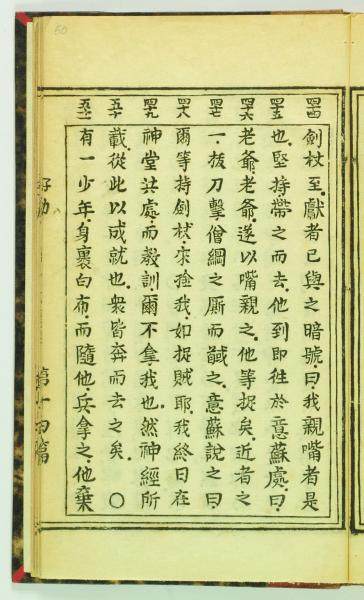 四十四 劍杖至獻者已與之暗號曰我親嘴者是
四十五 也堅持帶之而去他到即往於意蘇處曰
四十六 老爺老爺遂以嘴親之他等捉矣近者之
四十七 一拔刀擊僧綱之厮而馘之意蘇說之曰
四十八 爾等持劍杖來捡我如捉賊耶我終日在
四十九 神堂共處而教訓爾不拿我也然神經所
五十 載從此以成就也衆皆奔而去之矣○
五十一 有一少年身裹白布而隨他兵拿之他棄
第十四篇
50